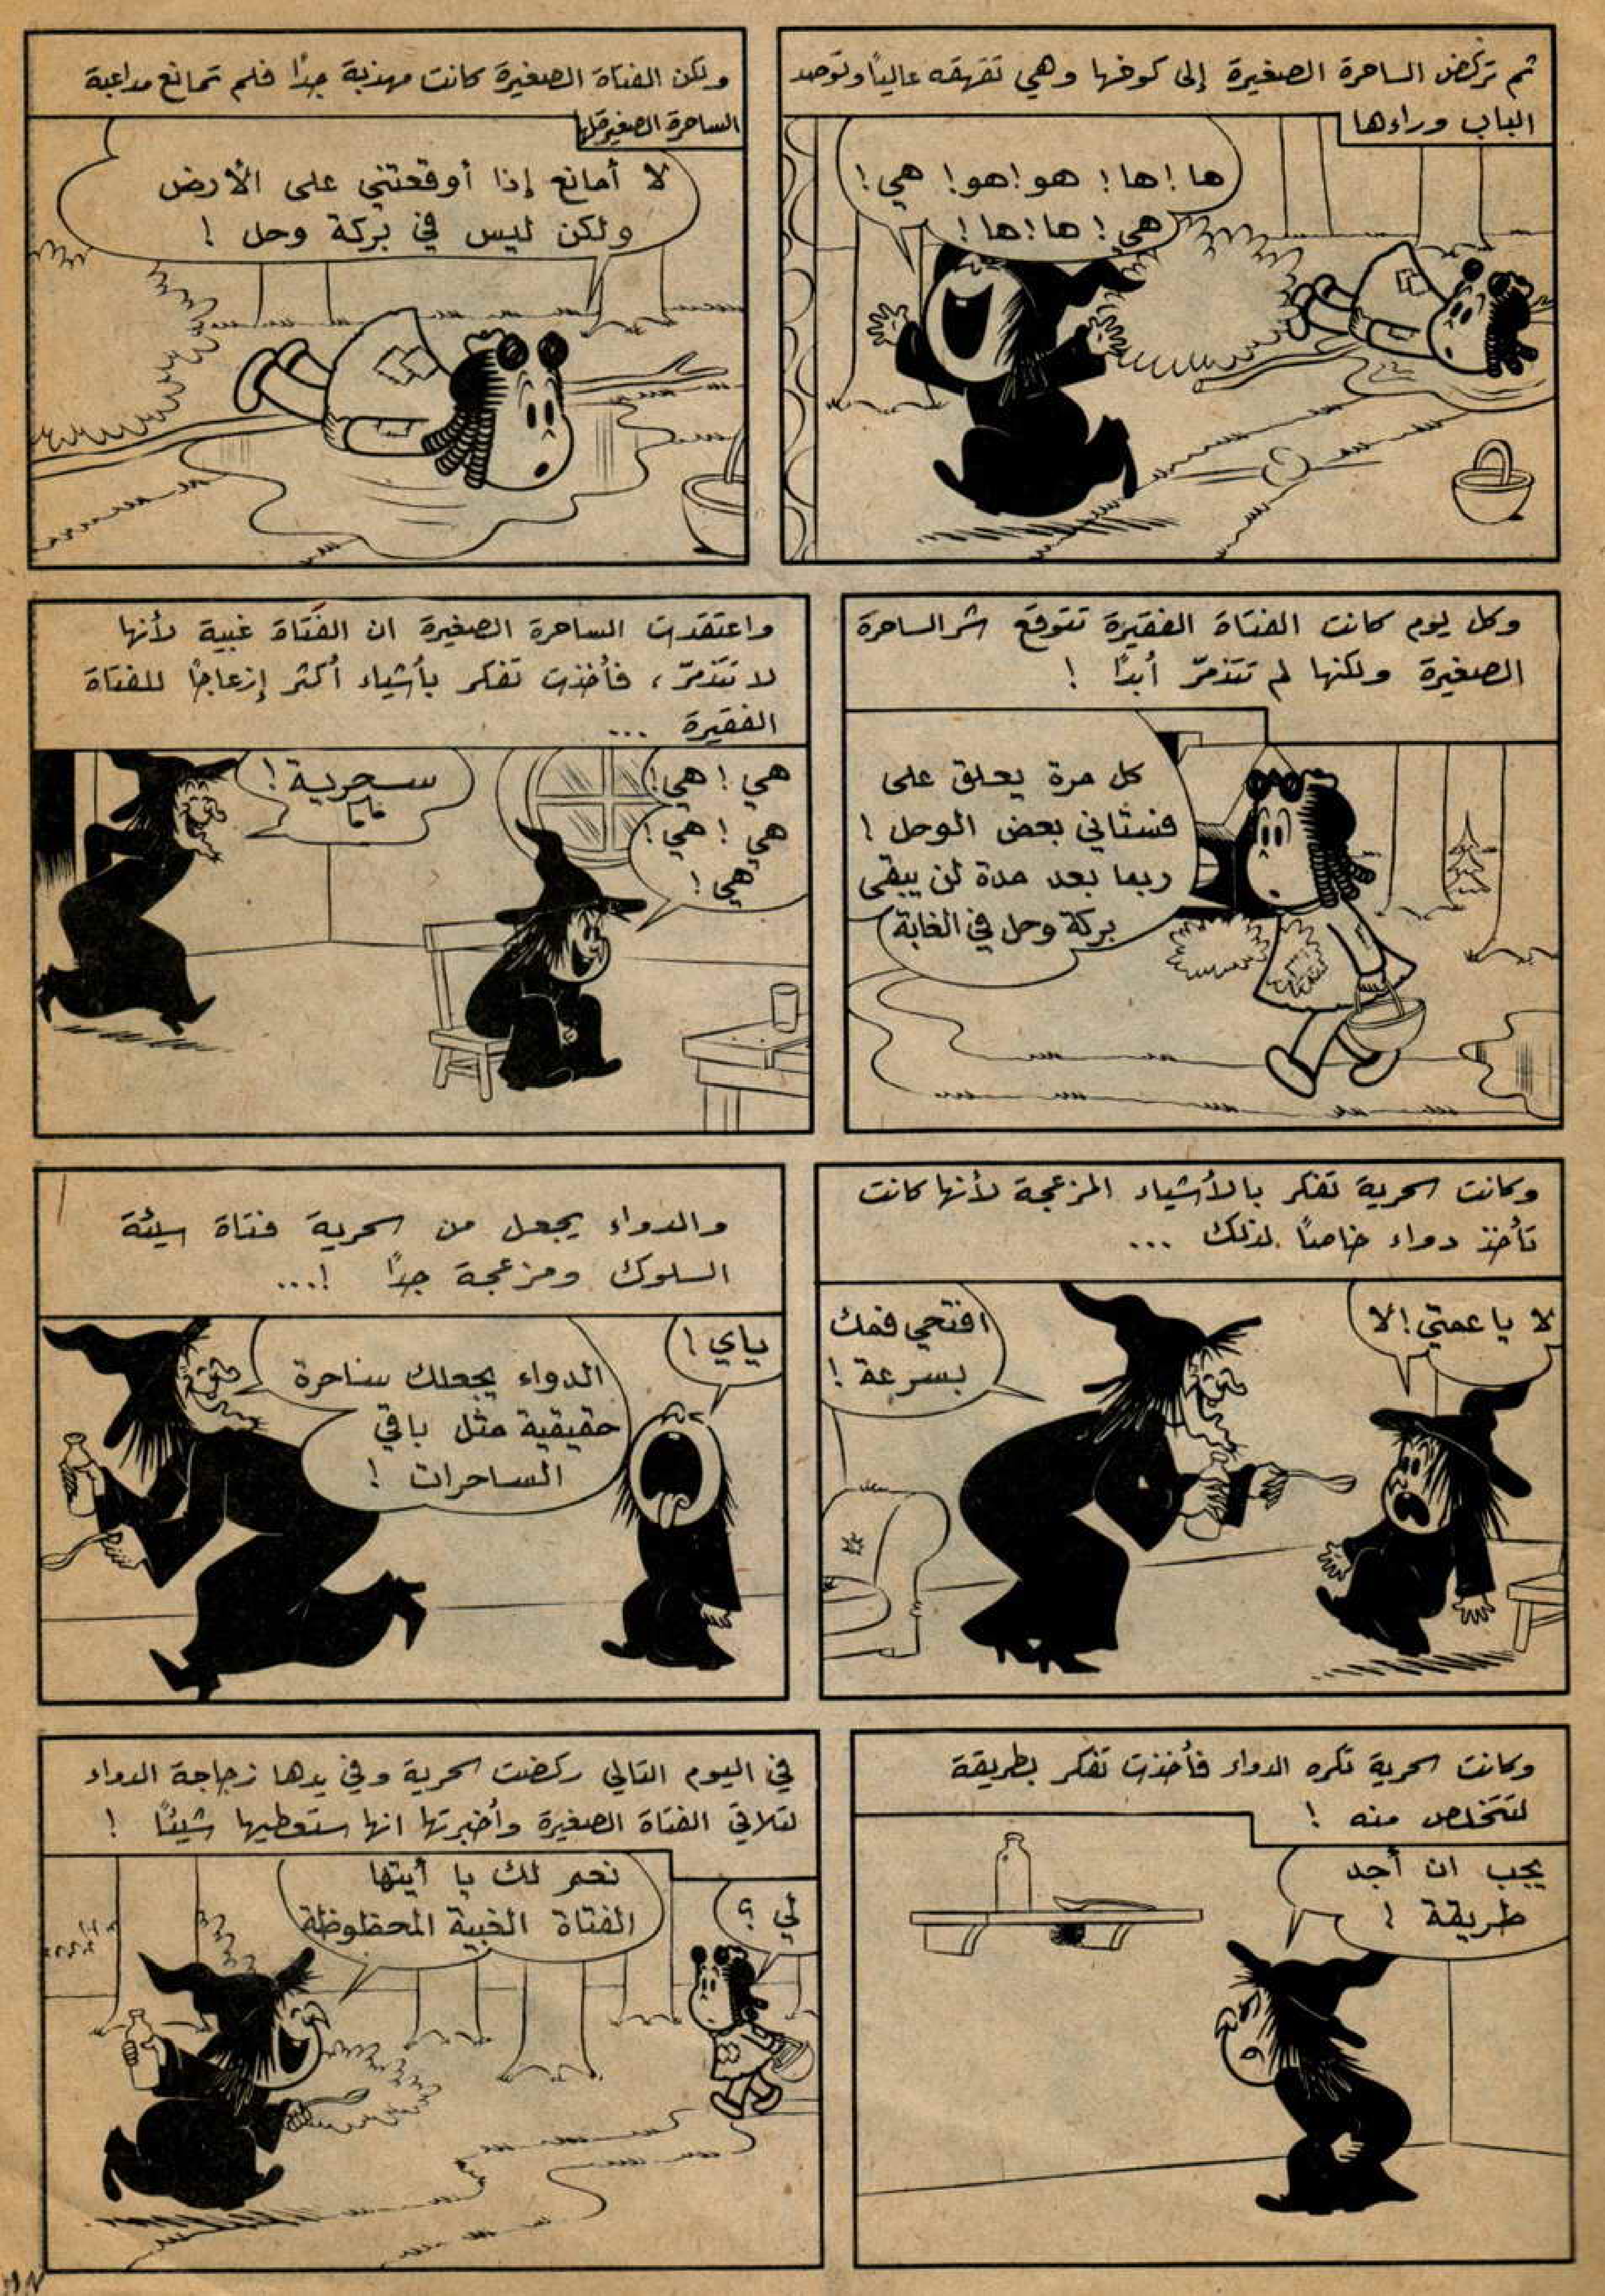 ثم تركض الساحرة الصغيرة إلى كوخها وهي تقهقه عالياً وتوصد
الباب وراءها
ها! ها! هو! هو! هي!
هي! ها! ها!
ولكن الفتاة الصغيرة كانت مهذبة جداً فلم تمانع مداعبة
الساحرة الصغيرة لها
لا أمانع إذا أوقعتني على الأرض
ولكن ليس في بركة وحل !
وكل يوم كانت الفتاة الفقيرة تتوقع شر الساحرة
الصغيرة ولكنها لم تتذمّر أبداً !
كل مرة يعلق على
فستاني بعض الوحل !
ربما بعد مدة لن يبقى
بركة وحل في الغابة
واعتقدت الساحرة الصغيرة ان الفتاة غبية لأنها
لا تتذمّر ، فأخذت تفكر بأشياء أكثر إزعاجاً للفتاة
الفقيرة ...
هي ! هي !
هي ! هي !
هي !
سحرية !
وكانت سحرية تفكر بالأشياء المزعجة لأنها كانت
تأخذ دواء خاصاً لذلك ...
لا يا عمتي ! لا
افتحي فمك
بسرعة !
والدواء يجعل من سحرية فتاة سيئة
السلوك ومزعجة جداً !...
ياي !
الدواء يجعلك ساحرة
حقيقية مثل باقي
الساحرات !
وكانت سحرية تكره الدواء فأخذت تفكر بطريقة
لتتخلص منه !
يجب ان أجد
طريقة !
في اليوم التالي ركضت سحرية وفي يدها زجاجة الدواء
لتلاقي الفتاة الصغيرة وأخبرتها انها ستعطيها شيئاً !
لي ؟
نعم لك يا أيتها
الفتاة الغبية المحظوظة